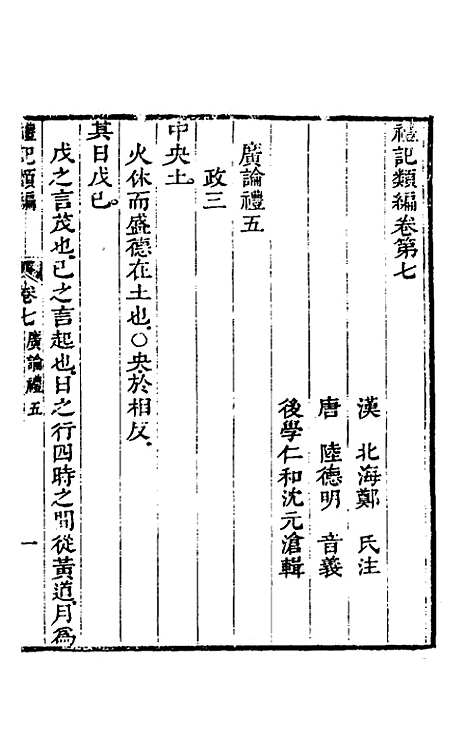 禮記類編卷第七
漢 北海鄭 氏注
唐 陸德明 音義
後學仁和沈元滄輯
廣論禮五
政三
中央土
火休而盛德在土也〇央於相反
其日戊己
戊之言茂也己之言起也日之行四時之間從黃道月爲
禮記類編 卷七廣論禮五 一